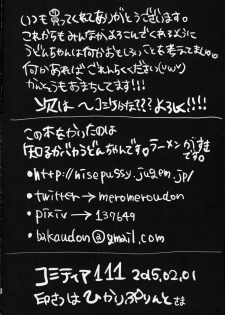 いつも買ってくれてありがとうございます。
これからもみんながよろこんでくれるように
うどんちゃんは何かおもしろいことを考てまいす。
何かあればごれんらくください(˘ω˘)
かんそうもおまちしてます!!!
次は よろしく!!!!
この本をかいたのは
知るかバカうどんちゃんです。ラーメンがすきです。
•http://nisepussy.jugem.jp/
•twitter→meromeroudon
•pixiv→139649
•bakaudon@gmail.com
コミティア111 2015.02.01
印さつはひかりぷりんとさま